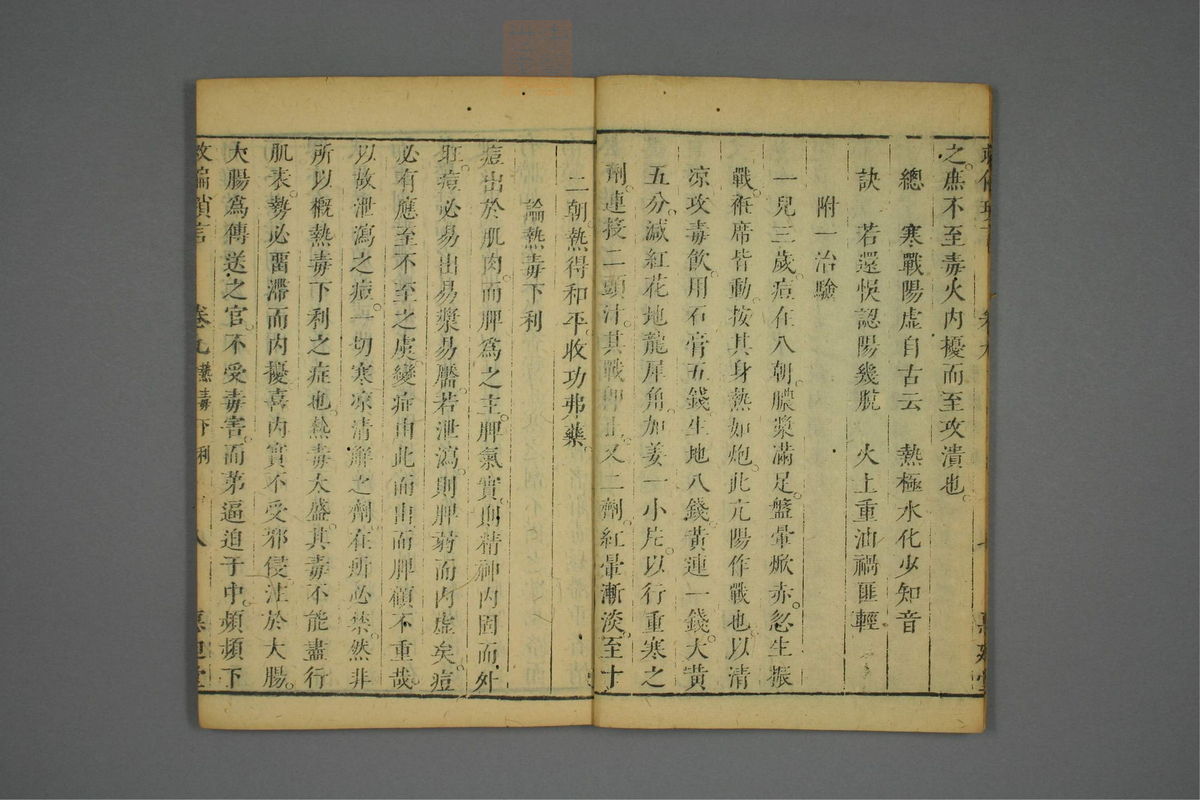 之庶不至毒火內擾而至攻潰也
總　寒戰陽虛自古云　熱極水化少知音
訣　若還悞認陽幾脫　火上重油禍匪輕
附一治驗
一兒三歲痘在八朝膿漿滿足盤暈焮赤忽生振
戰袵席皆動按其身熱如炮此亢陽作戰也以清
凉攻毒飲用石膏五錢生地八錢黃連一錢大黃
五分減紅花地龍犀角加姜一小片以行重寒之
劑連投二頭汁其戰卽止又二劑紅暈漸淡至十
二朝熱得和平收功弗藥
論熱毒下利
痘出於肌肉而脾爲之主脾氣實則精神內固而外
旺痘必易出易漿易靨若泄瀉則脾弱而內虛矣痘
必有應至不至之處變症由此而出而脾顧不重哉
以故泄瀉之痘一切寒凉清解之劑在所必禁然非
所以槪熱毒下利之症也熱毒太盛其毒不能盡行
肌表勢必畱滯而內擾喜內實不受邪侵注於大腸
大腸爲傳送之官不受毒害而第逼迫于中頻頻下
救偏瑣言　卷九　熱毒下利　八　惠迪堂